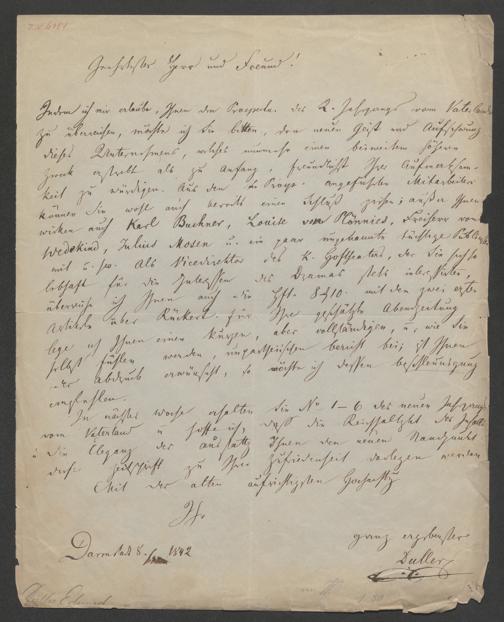 Geehrtester Herr und Freund!
Indem ich mir erlaube, Ihnen den Prospectus des 2. Jahrgangs vom Vaterland
zu überreichen, möchte ich Sie bitten, den neuen Geist und Aufschwung
dieses Unternehmens, welches nunmehr einen höheren
Zweck erstrebt als zu Anfang, freundlichst Ihrer Aufmerksam-
keit zu würdigen. Aus den im Prosp. angeführten Mitarbeitern
können Sie wohl auch bereits einen Schluß ziehen; außer Ihnen
wirken auch Karl Buchner, Louise von Plönnies, Freiherr von
Wedekind, Julius Mosen u. ein paar ungenannte tüchtige
mit u.s.w. Als Vicedirektor des K. Hoftheaters, der Sie sich so
lebhaft für die Interessen des Dramas stets
übersende ich Ihnen auch die Hfte. 8 & 10. mit den zwei ersten
Artikeln über Rückert. Für Ihre geschätzte Abendzeitung
lege ich Ihnen einen kurzen, aber vollständigen, u. wie Sie
selbst fühlen werden, unpartheiischen Bericht bei; ist Ihnen
der Abdruck erwünscht, so möchte ich dessen Beschleunigung
empfehlen.
In nächster Woche erhalten Sie No 1–6 des neuen Jahrgangs
vom Vaterland u. hoffe ich, daß die Reichhaltigkeit des Inhalts
u. die Eleganz der Ausstattung Ihnen den neuen Standpunkt
dieser Zeitschrift zu Ihrer Zufriedenheit darlegen werden.
Mit der alten aufrichtigsten Hochachtung
Ihr
ganz ergebenster
Duller
Darmstadt 8. 1842